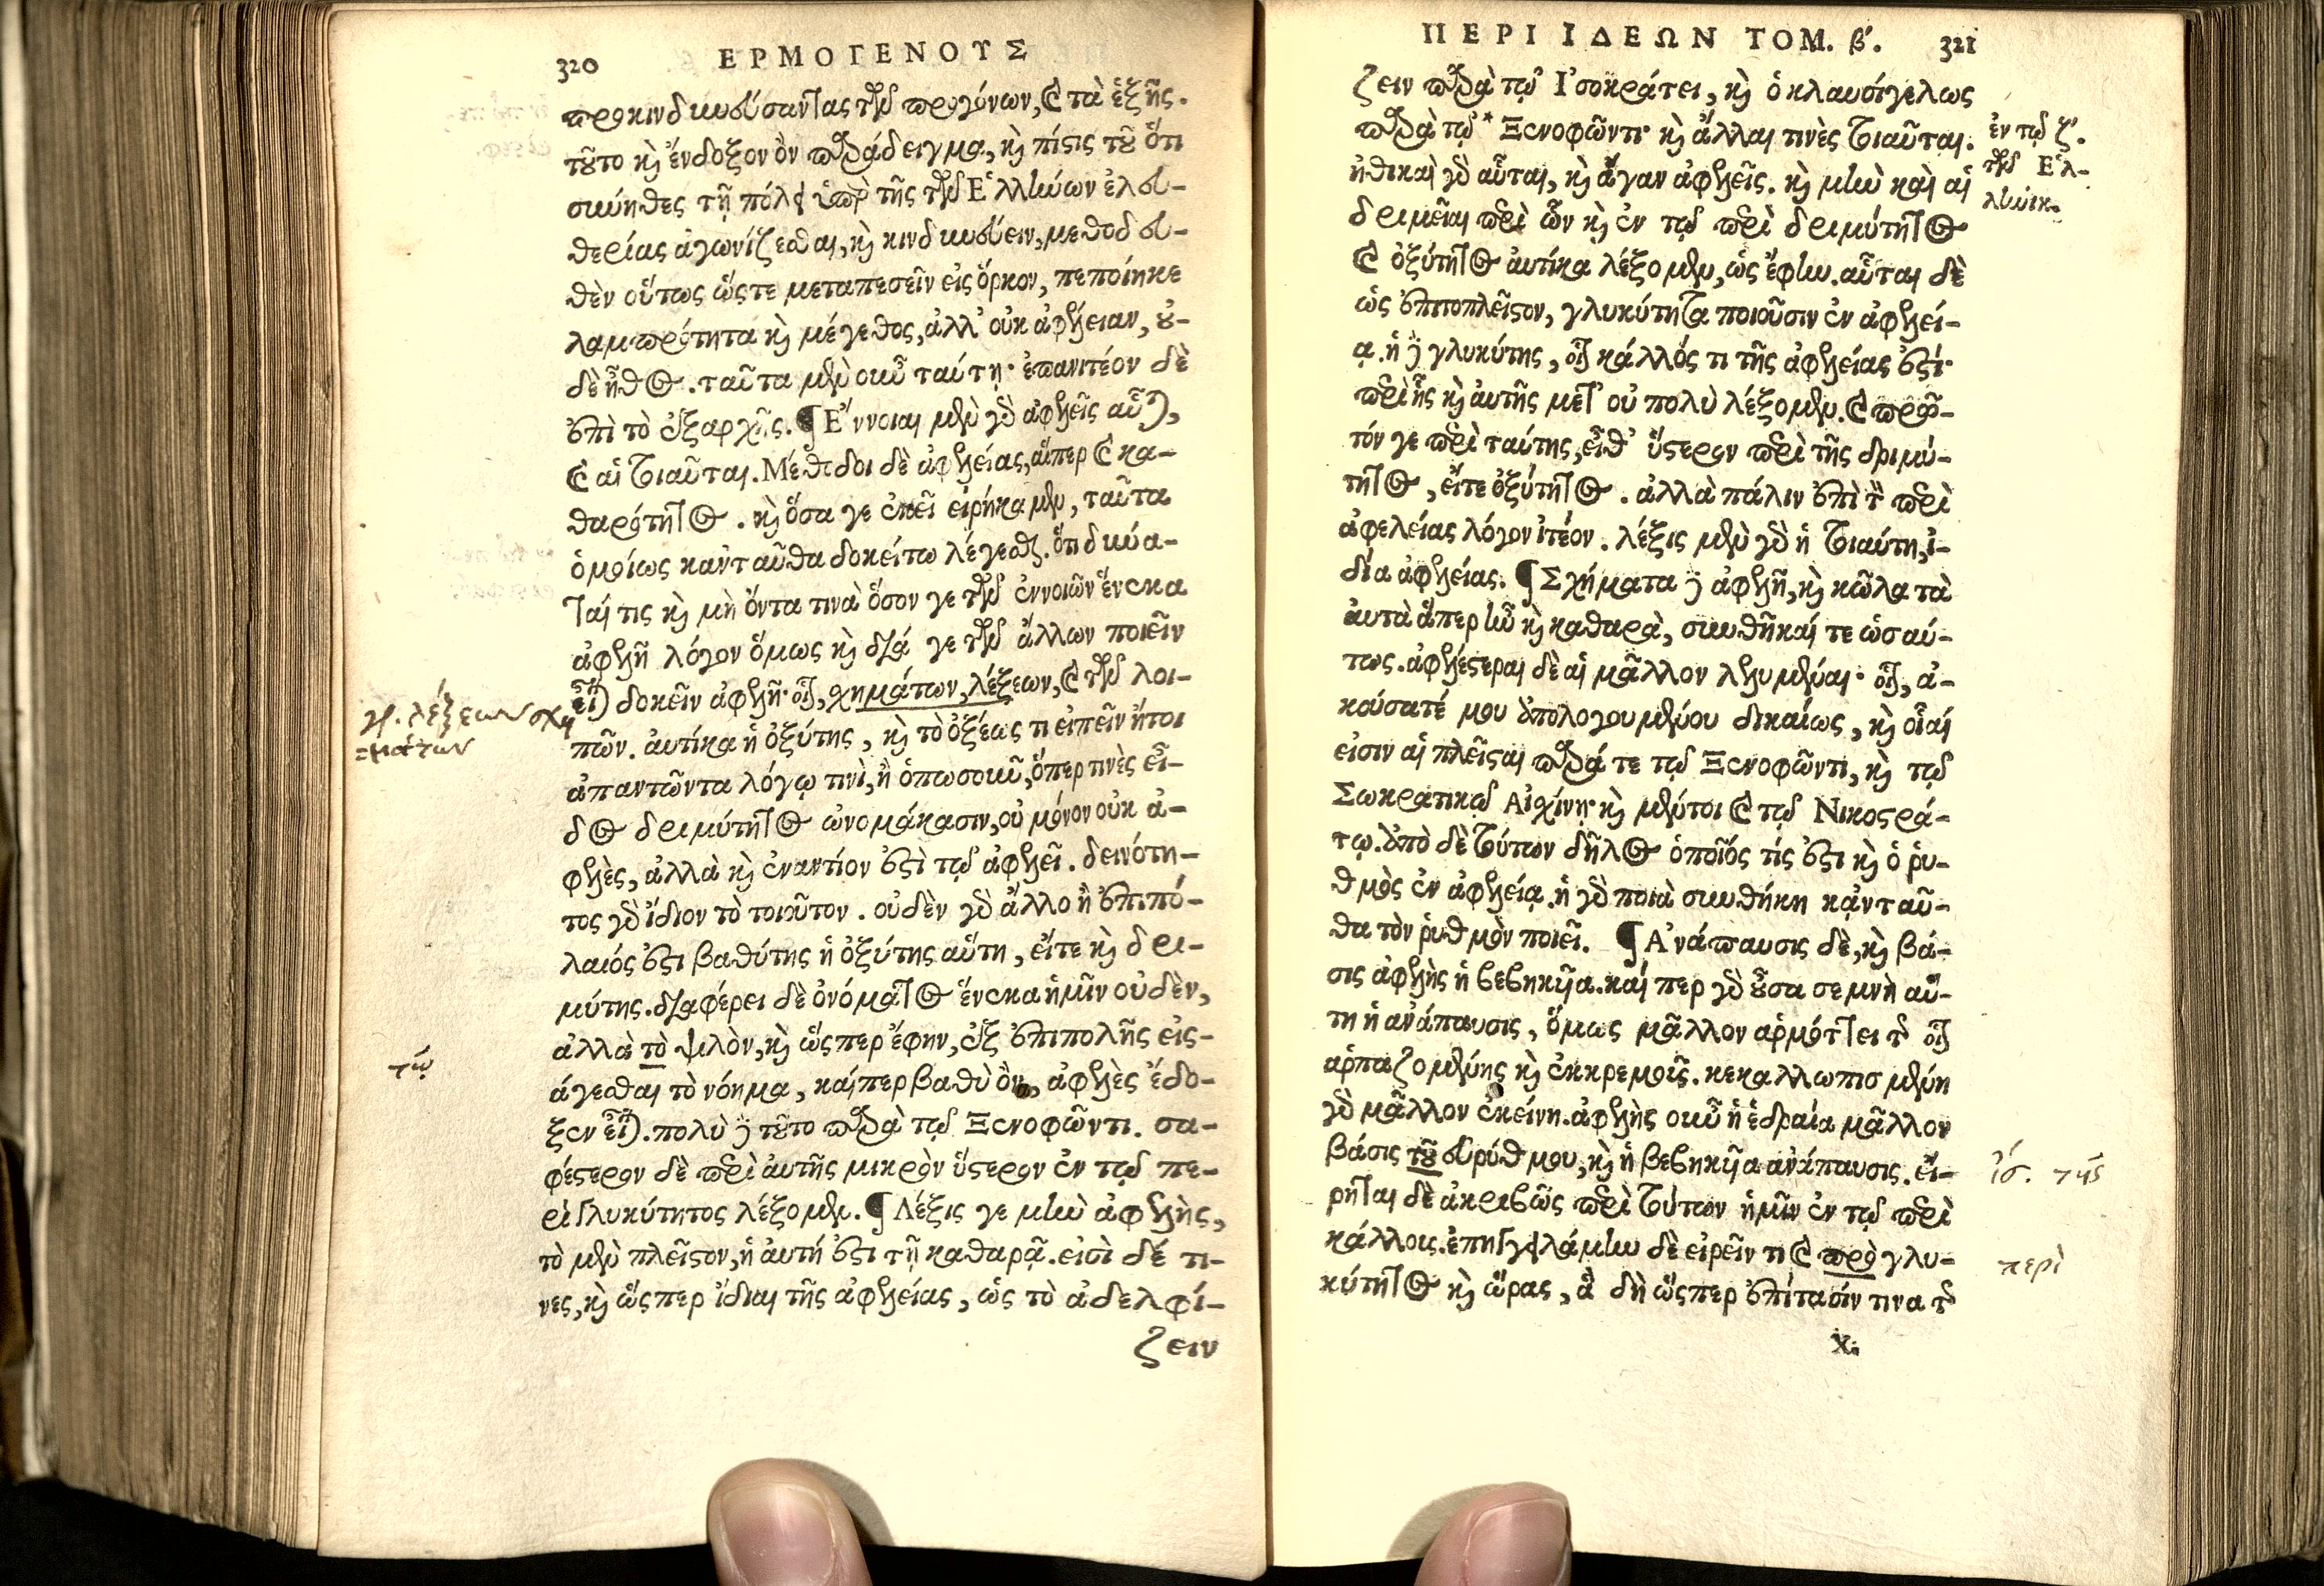 320 ΕΡΜΟΓΕΝΟΥΣ
προκινδυνεύσαντας τῶν προγόνων, καὶ τὰ ἑξῆς.
τοῦτο καὶ ἔνδοξον ὂν παράδειγμα, καὶ πίστις τοῦ ὅτι
σύνηθες τῇ πόλει ὑπὲρ τῆς τῶν Ἑλλήνων ἐλευ-
θερίας ἀγωνίζεσθαι, καὶ κινδυνεύειν, μεθοδευ-
θὲν οὕτως ὥςτε μεταπεσεῖν εἰς ὅρκον, πεποίηκε
λαμπρότητα καὶ μέγεθος, ἀλλ' οὐκ ἀφέλειαν, οὐ-
δὲ ἦθος. ταῦτα μὲν οὖν ταύτῃ· ἐπανιτέον δὲ
ἐπὶ τὸ ἐξαρχῆς. ¶ Ἔννοιαι μὲν γὰρ ἀφελεῖς αὗται,
καὶ αἱ τοιαῦται. Μέθοδοι δὲ ἀφελείας, αἵπερ καὶ κα-
θαρότητος. καὶ ὅσα γε ἐκεῖ εἰρήκαμεν, ταῦτα
ὁμοίως κἀνταῦθα δοκείτω λέγεσθαι. ὅτι δύνα-
ταί τις καὶ μὴ ὄντα τινὰ ὅσον γε τῶν ἐννοιῶν ἕνεκα
ἀφελῆ λόγον ὅμως καὶ διά γε τῶν ἄλλων ποιεῖν
εἶναι δοκεῖν ἀφελῆ· οἷον, σχημάτων, λέξεων, καὶ τῶν λοι-
γρ. λέξεων σχη
=μάτων
πῶν. αὐτίκα ἡ ὀξύτης, καὶ τὸ ὀξέως τι εἰπεῖν ἤτοι
ἀπαντῶντα λόγῳ τινὶ, ἢ ὁπωσοῦν, ὅπερ τινὲς εἶ-
δος δριμύτητος ὠνομάκασιν, οὐ μόνον οὐκ ἀ-
φελὲς, ἀλλὰ καὶ ἐναντίον ἐστὶ τῷ ἀφελεῖ. δεινότη-
τος γὰρ ἴδιον τὸ τοιοῦτον. οὐδὲν γὰρ ἄλλο ἢ ἐπιπό-
λαιός ἐστι βαθύτης ἡ ὀξύτης αὕτη, εἴτε καὶ δρι-
μύτης. διαφέρει δὲ ὀνόματος ἕνεκα ἡμῖν οὐδὲν,
ἀλλὰ τὸ ψιλὸν, καὶ ὥςπερ ἔφην, ἐξ ἐπιπολῆς εἰς-
τῷ
άγεσθαι τὸ νόημα, καίπερ βαθὺ ὂν, ἀφελὲς ἔδο-
ξεν εἶναι. πολὺ δὲ τοῦτο παρὰ τῷ Ξενοφῶντι. σα-
φέστερον δὲ περὶ αὐτῆς μικρὸν ὕστερον ἐν τῷ πε-
ρὶ γλυκύτητος λέξομεν. ¶ Λέξις γε μὴν ἀφελὴς,
τὸ μὲν πλεῖστον, ἡ αὐτή ἐστι τῇ καθαρᾷ. εἰσὶ δέ τι-
νες, καὶ ὥςπερ ἴδιαι τῆς ἀφελείας, ὡς τὸ ἀδελφί-
ζειν
ΠΕΡΙ ΙΔΕΩΝ ΤΟΜ. β'. 321
ζειν παρὰ τῷ Ἰσοκράτει, καὶ ὁ κλαυσίγελως
παρὰ τῷ * Ξενοφῶντι· καὶ ἄλλαι τινὲς τοιαῦται.
ἐν τῷ ζ'.
τῶν Ἑλ-
ληνικ.
ἠθικαὶ γὰρ αὗται, καὶ ἄγαν ἀφελεῖς. καὶ μὴν καὶ αἱ
δριμεῖαι περὶ ὧν καὶ ἐν τῷ περὶ δριμύτητος
καὶ ὀξύτητος αὐτίκα λέξομεν, ὡς ἔφην. αὗται δὲ
ὡς ἐπιτοπλεῖστον, γλυκύτητα ποιοῦσιν ἐν ἀφελεί-
ᾳ. ἡ δὲ γλυκύτης, οἷον κάλλός τι τῆς ἀφελείας ἐστί·
περὶ ἧς καὶ αὐτῆς μετ' οὐ πολὺ λέξομεν. καὶ πρῶ-
τόν γε περὶ ταύτης, εἶθ' ὕστερον περὶ τῆς δριμύ-
τητος, εἴτε ὀξύτητος. ἀλλὰ πάλιν ἐπὶ τὸν περὶ
ἀφελείας λόγον ἰτέον. λέξις μὲν γὰρ ἡ τοιαύτη, ἰ-
δία ἀφελείας. ¶ Σχήματα δὲ ἀφελῆ, καὶ κῶλα τὰ
αὐτὰ ἅπερ ἦν καὶ καθαρὰ, συνθῆκαί τε ὡσαύ-
τως. ἀφελέστεραι δὲ αἱ μᾶλλον λελυμέναι· οἷον, ἀ-
κούσατέ μου ἀπολογουμένου δικαίως, καὶ οἷαί
εἰσιν αἱ πλεῖσται παρά τε τῷ Ξενοφῶντι, καὶ τῷ
Σωκρατικῷ Αἰσχίνῃ· καὶ μέντοι καὶ τῷ Νικοστρά-
τῳ. ἀπὸ δὲ τούτων δῆλος ὁποῖός τίς ἐστι καὶ ὁ ῥυ-
θμὸς ἐν ἀφελείᾳ. ἡ γὰρ ποιὰ συνθήκη κἀνταῦ-
θα τὸν ῥυθμὸν ποιεῖ. ¶ Ἀνάπαυσις δὲ, καὶ βά-
σις ἀφελὴς ἡ βεβηκυῖα. καί περ γὰρ οὖσα σεμνὴ αὕ-
τη ἡ ἀνάπαυσις, ὅμως μᾶλλον ἁρμόττει τῆς οἷον
ἁρπαζομένης καὶ ἐκκρεμοῦς. κεκαλλωπισμένη
γὰρ μᾶλλον ἐκείνη. ἀφελὴς οὖν ἡ ἑδραία μᾶλλον
βάσις τοῦ εὐρύθμου, καὶ ἡ βεβηκυῖα ἀνάπαυσις. εἴ-
ἴσ. τῆς
ρηται δὲ ἀκριβῶς περὶ τούτων ἡμῖν ἐν τῷ περὶ
κάλλους. ἐπηγγειλάμην δὲ εἰρεῖν τι καὶ πρὸ γλυ-
περὶ
κύτητος καὶ ὥρας, ἃ δὴ ὥςπερ ἐπίτασίν τινα τῆς
X.